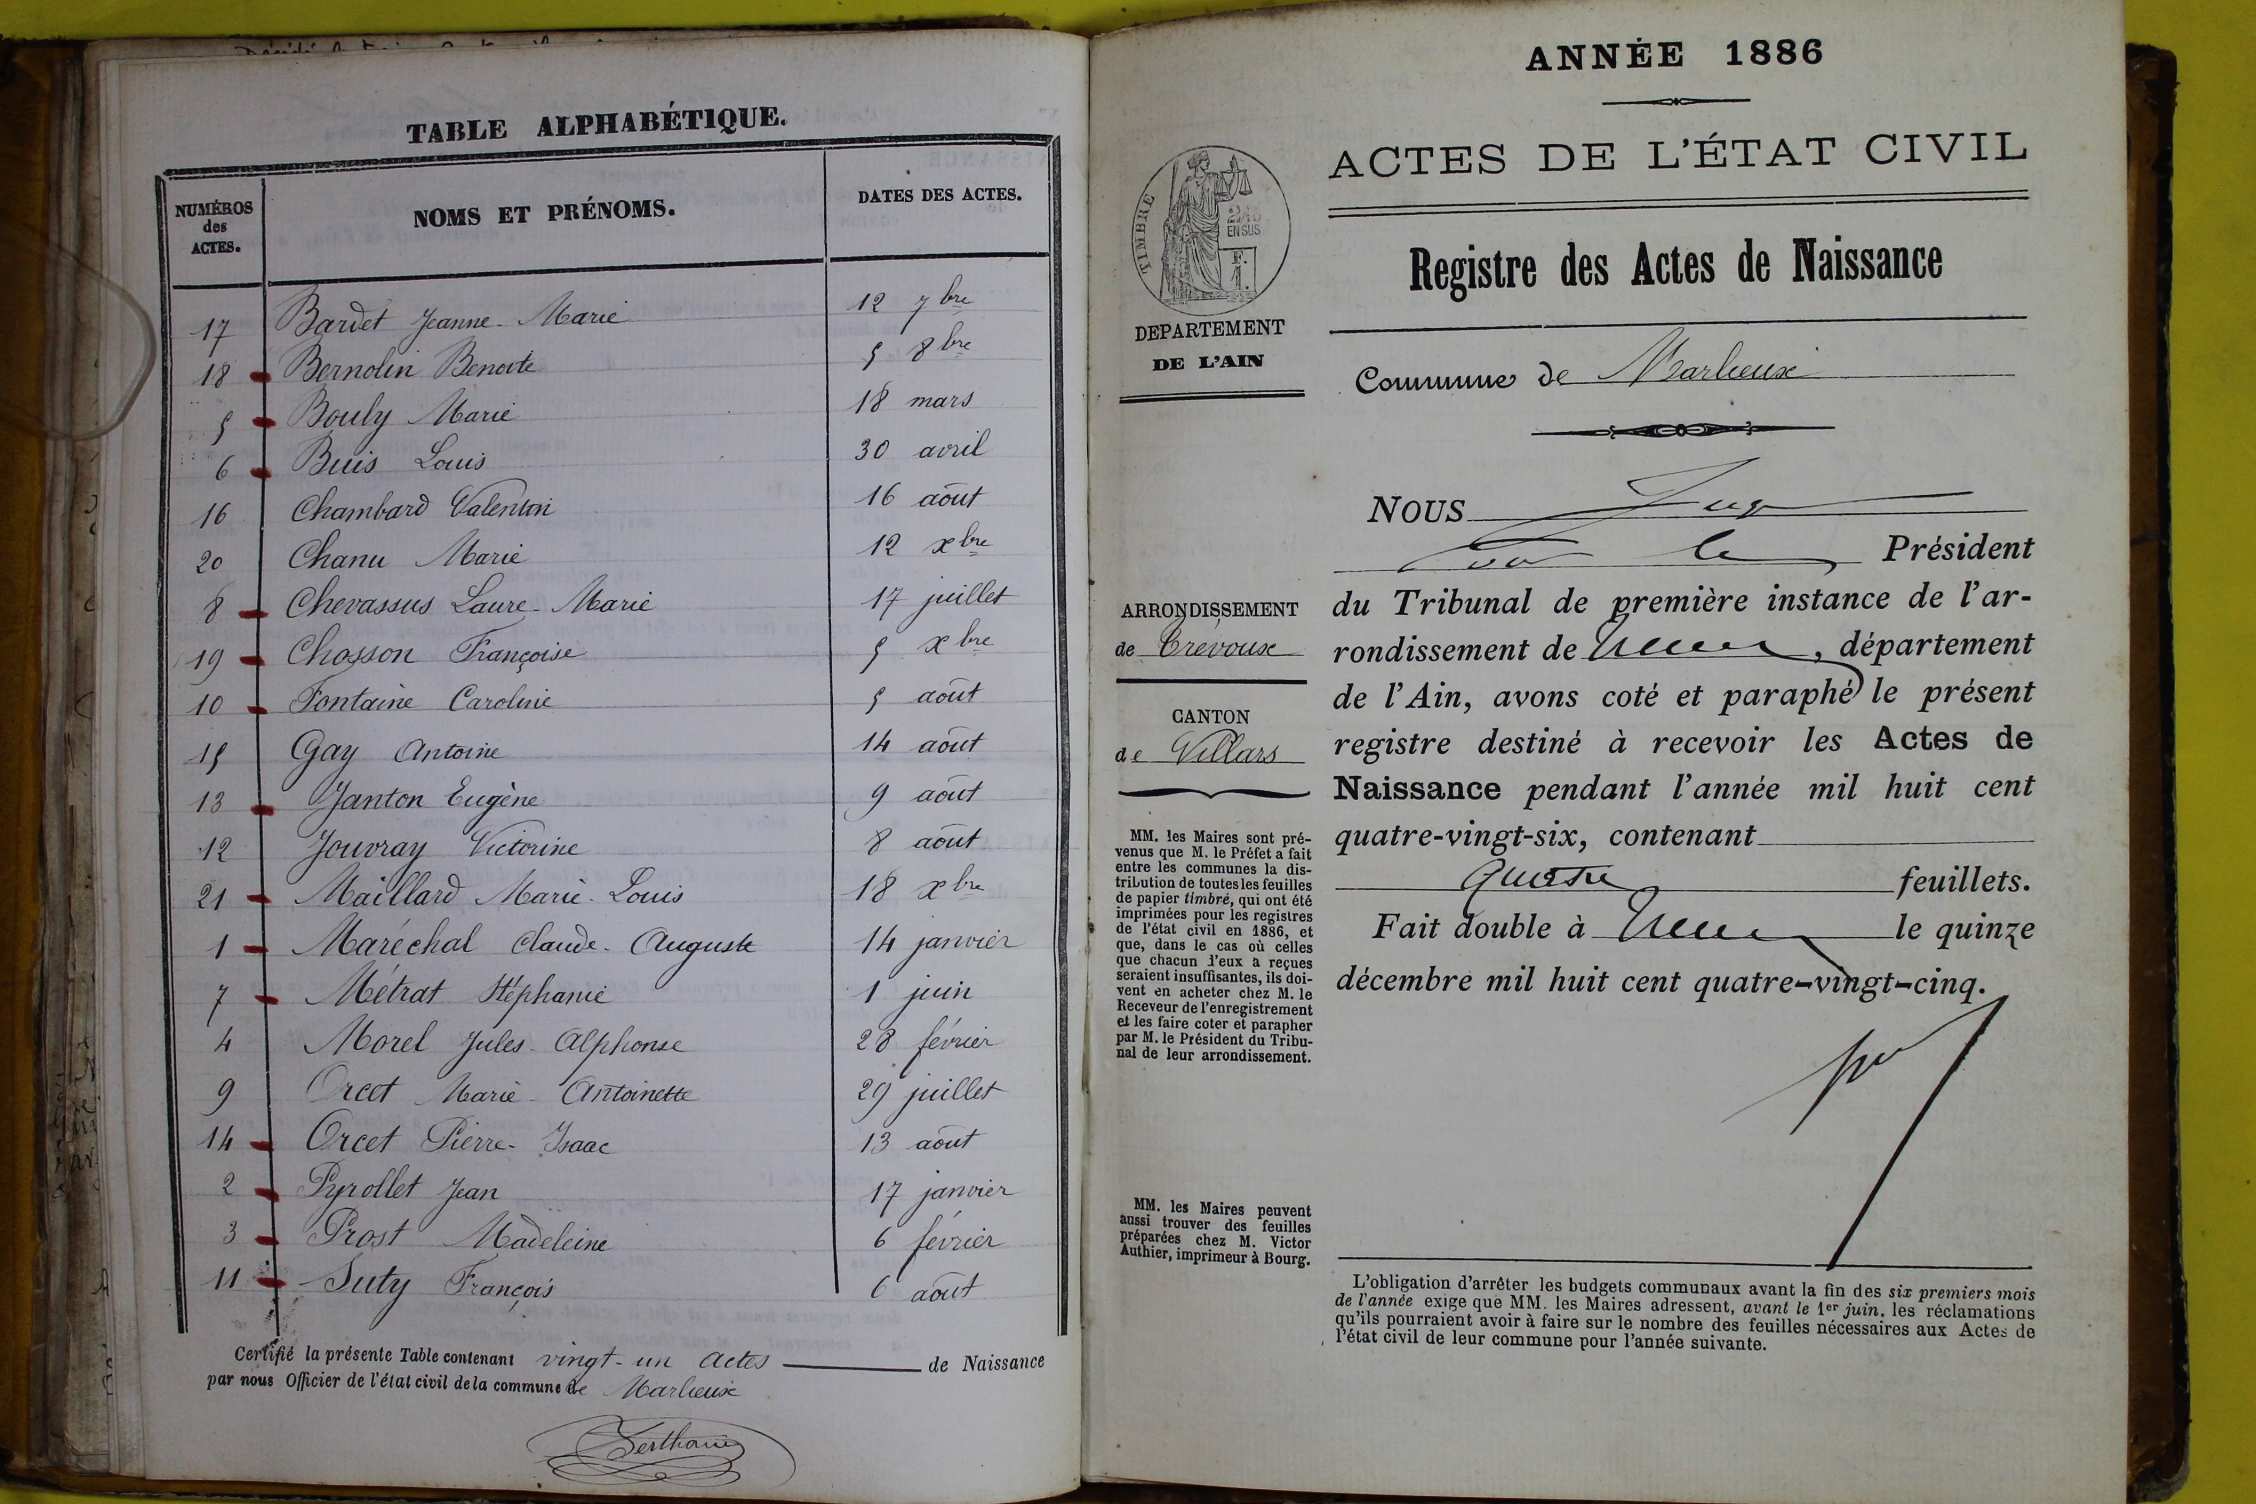 TABLE ALPHABÉTIQUE.
NUMÉROS des ACTES. NOMS ET PRÉNOMS. DATES DES ACTES.
17 Bardet Jeanne-Marie 12 7bre
18 Bernolin Benoite 5 8bre
5 Bouly Marie 18 mars
6 Buis Louis 30 avril
16 Chambard Valentin 16 août
20 Chanu Marie 12 xbre
8 Chevassus Laure-Marie 17 juillet
19 Chosson Françoise 5 xbre
10 Fontaine Caroline 5 août
15 Gay Antoine 14 août
13 Janton Eugène 9 août
12 Jouvray Victorine 8 août
21 Maillard Marie-Louis 18 xbre
1 Maréchal Claude-Auguste 14 janvier
7 Métrat Stéphanie 1 juin
4 Morel Jules-Alphonse 28 février
9 Orcet Marie-Antoinette 29 juillet
14 Orcet Pierre-Isaac 13 août
2 Pyrollet Jean 17 janvier
3 Prost Madeleine 6 février
11 Suty François 6 août
Certifié la présente Table contenant vingt-un actes de Naissance
par nous Officier de l'état civil de la commune de Marlieux
ANNÉE 1886
ACTES DE L'ÉTAT CIVIL
TIMBRE
EN SUS
F.
1.
DEPARTEMENT
DE L'AIN
Registre des Actes de Naissance
Commune de Marlieux
NOUS Juge
pour le Président
du Tribunal de première instance de l'ar-
rondissement de , département
de l'Ain, avons coté et paraphé le présent
registre destiné à recevoir les Actes de
Naissance pendant l'année mil huit cent
quatre-vingt-six, contenant
quatre feuillets.
Fait double à le quinze
décembre mil huit cent quatre-vingt-cinq.
ARRONDISSEMENT
de Trévoux
CANTON
de Villars
MM. les Maires sont pré-
venus que M. le Préfet a fait
entre les communes la dis-
tribution de toutes les feuilles
de papier timbré, qui ont été
imprimées pour les registres
de l'état civil en 1886, et
que, dans le cas où celles
que chacun d'eux a reçues
seraient insuffisantes, ils doi-
vent en acheter chez M. le
Receveur de l'enregistrement
et les faire coter et parapher
par M. le Président du Tribu-
nal de leur arrondissement.
MM. les Maires peuvent
aussi trouver des feuilles
préparées chez M. Victor
Authier, imprimeur à Bourg.
L'obligation d'arrêter les budgets communaux avant la fin des six premiers mois
de l'année exige que MM. les Maires adressent, avant le 1er juin, les réclamations
qu'ils pourraient avoir à faire sur le nombre des feuilles nécessaires aux Actes de
l'état civil de leur commune pour l'année suivante.